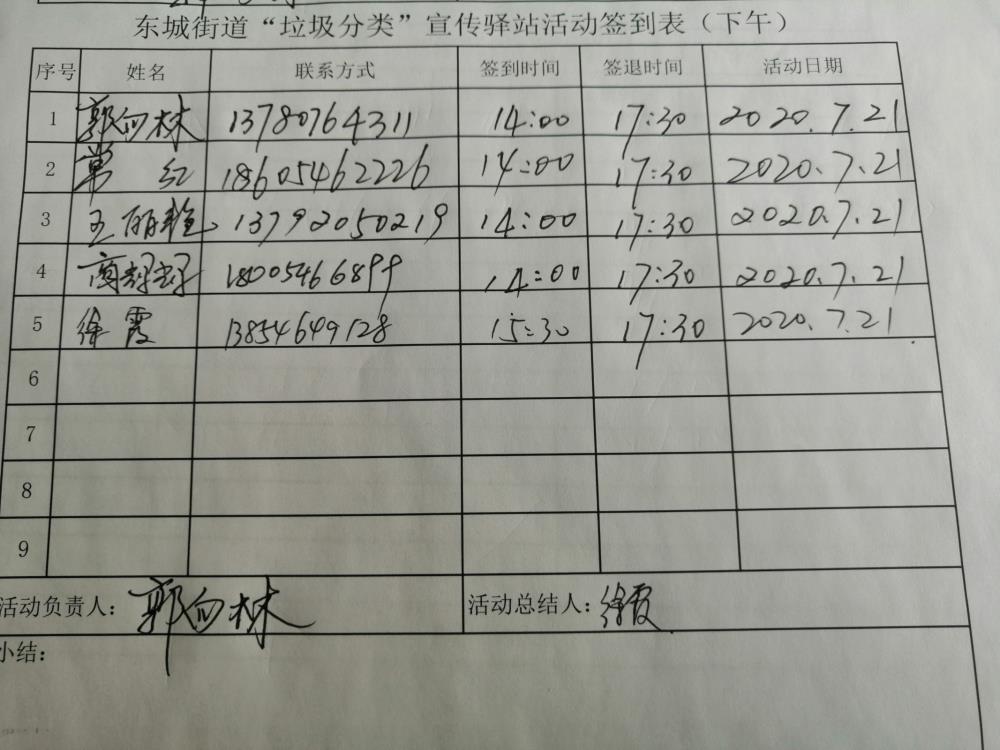 东城街道“垃圾分类”宣传驿站活动签到表（下午）
序号 姓名 联系方式 签到时间 签退时间 活动日期
1 郭向林 13780764311 14:00 17:30 2020.7.21
2 常红 18605462226 14:00 17:30 2020.7.21
3 王丽 13792050219 14:00 17:30 2020.7.21
4 18005466899 14:00 17:30 2020.7.21
5 徐霞 13854649128 15:30 17:30 2020.7.21
6
7
8
9
活动负责人：郭向林 活动总结人：徐霞
小结：